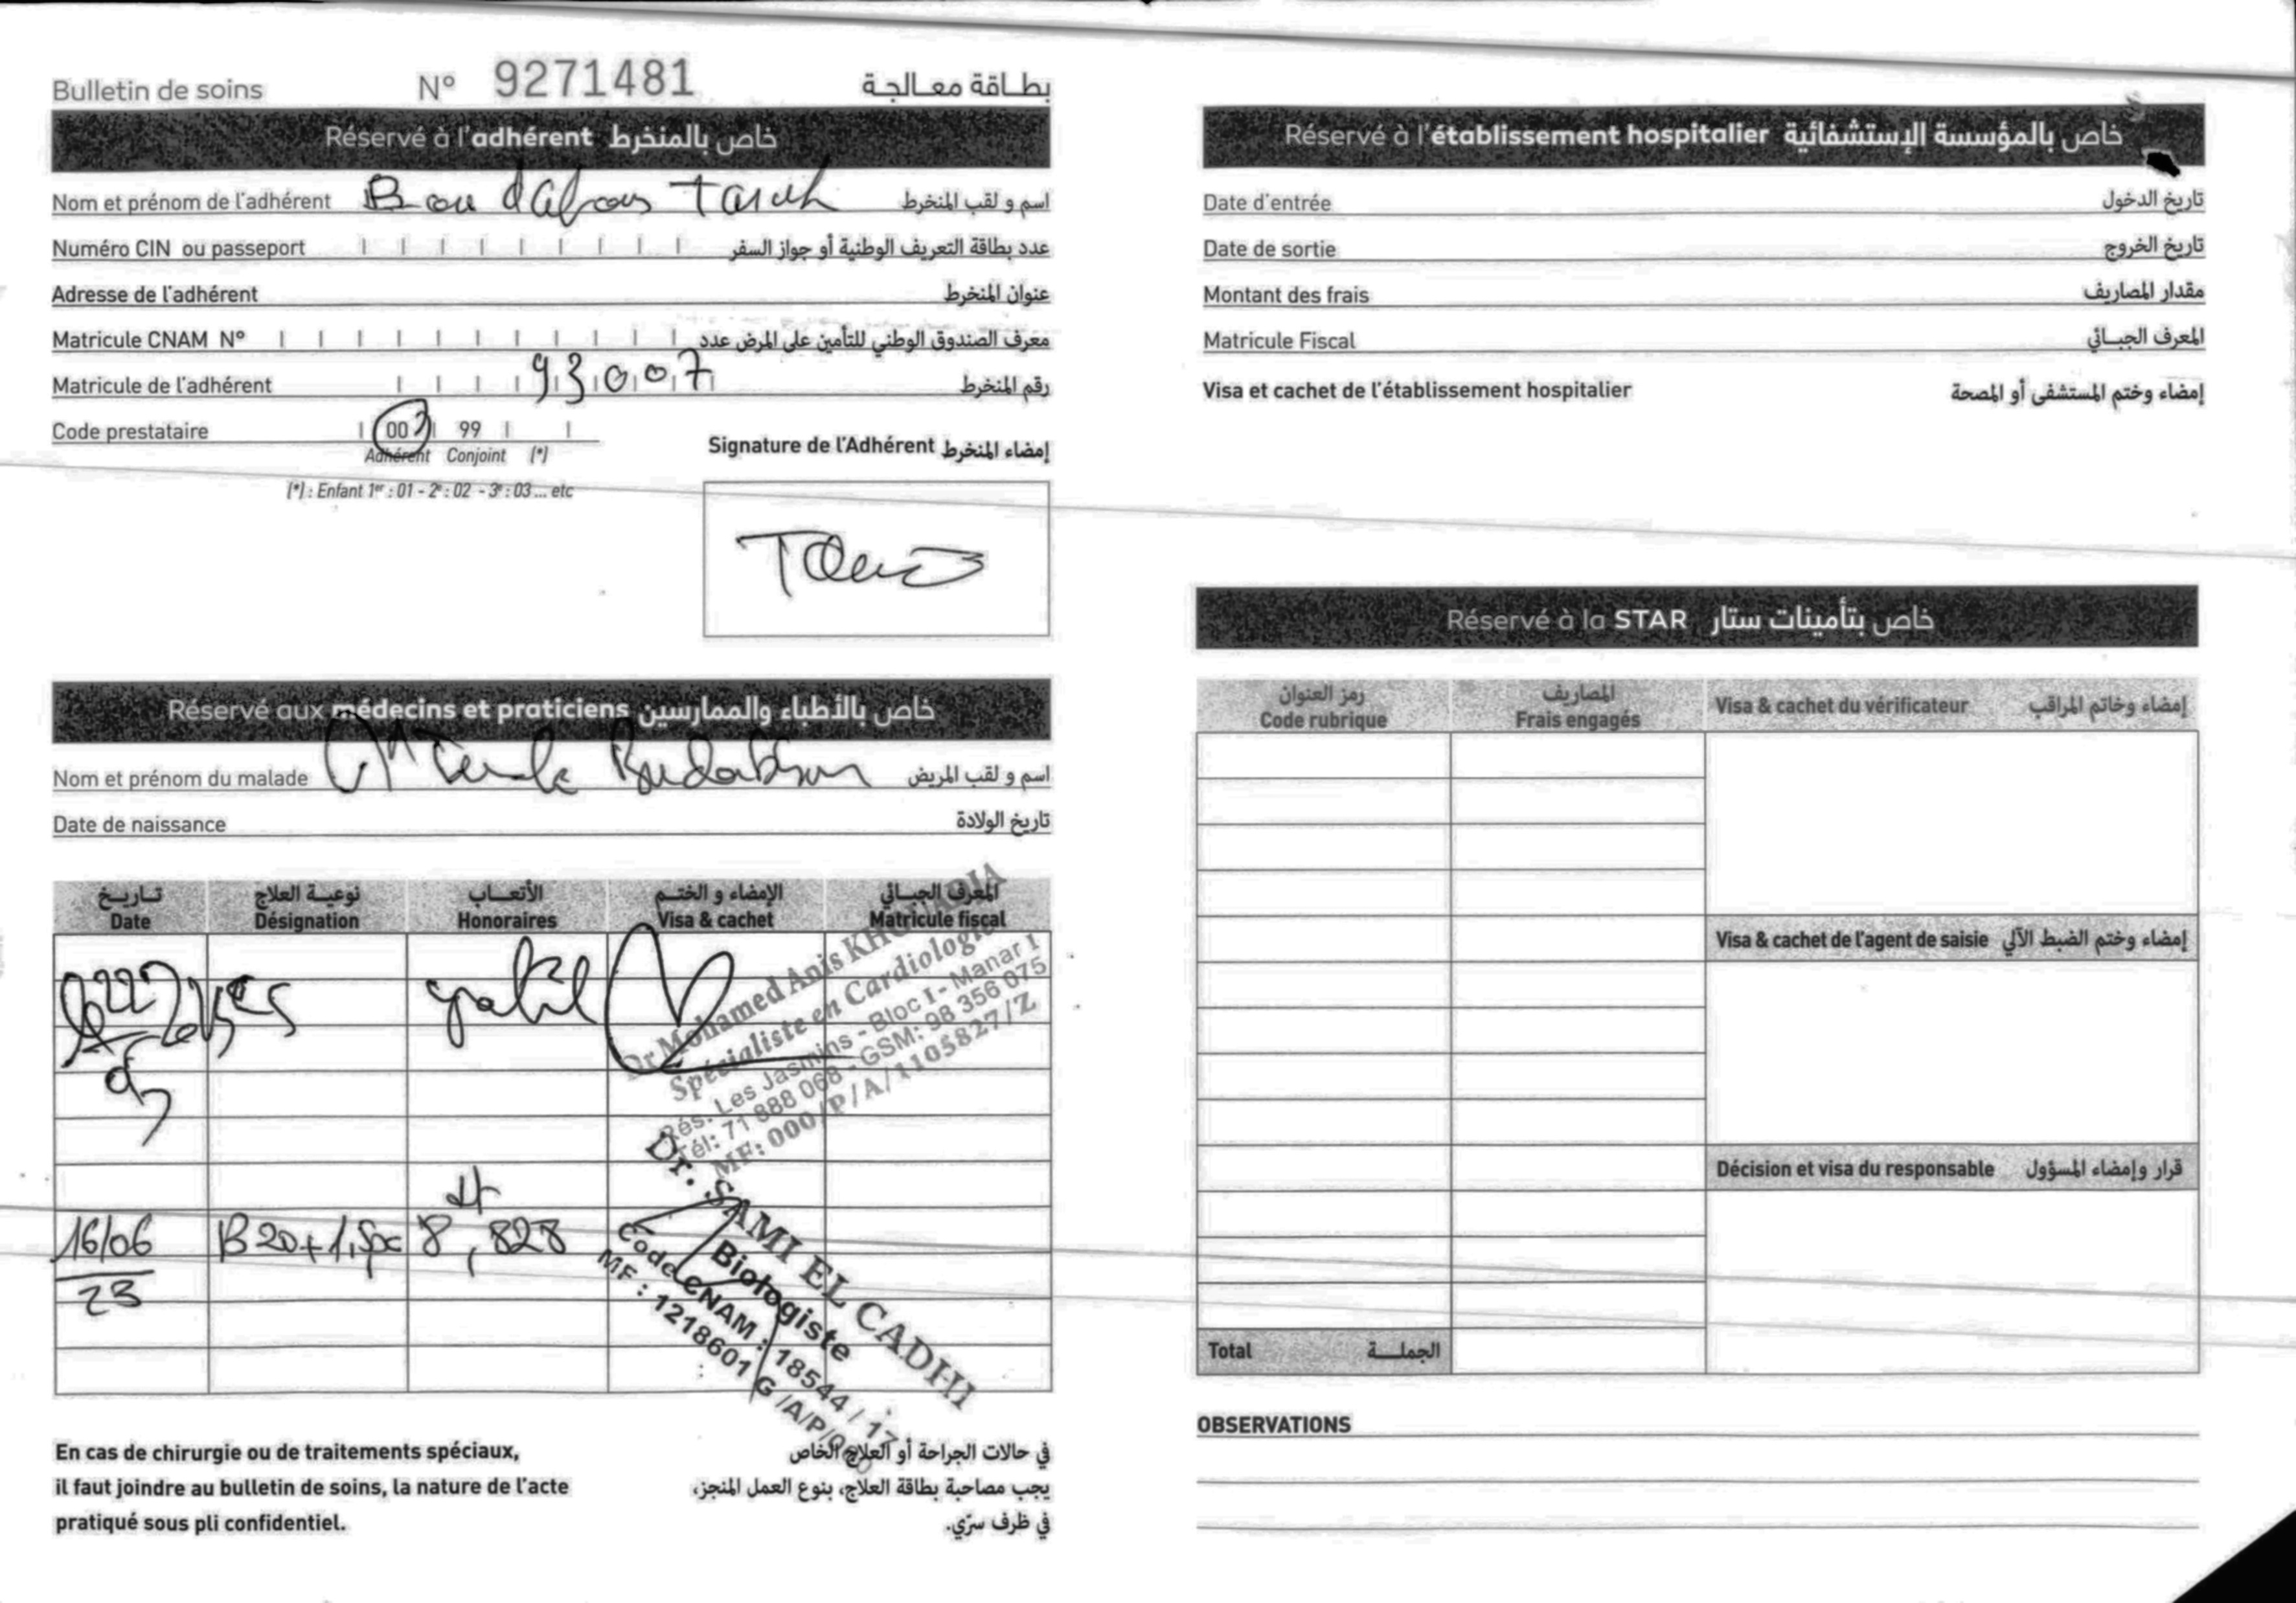 Bulletin de soins N° 9271481 بطاقة معالجة
Réservé à l'adhérent خاص بالمنخرط
Nom et prénom de l'adhérent اسم و لقب المنخرط
Numéro CIN ou passeport عدد بطاقة التعريف الوطنية أو جواز السفر
Adresse de l'adhérent عنوان المنخرط
Matricule CNAM N° معرف الصندوق الوطني للتأمين على المرض عدد
Matricule de l'adhérent 93007 رقم المنخرط
Code prestataire 00 99
Adhérent Conjoint (*)
(*) : Enfant 1er : 01 - 2e : 02 - 3e : 03 ... etc
Signature de l'Adhérent إمضاء المنخرط
Réservé aux médecins et praticiens خاص بالأطباء والممارسين
Nom et prénom du malade اسم و لقب المريض
Date de naissance تاريخ الولادة
تـاريـخ نوعيـة العلاج الأتعـاب الإمضاء و الختـم المعرف الجبـائي
Date Désignation Honoraires Visa & cachet Matricule fiscal
Dr Mohamed Anis
Spécialiste en Cardiologie
Rés. Les Jasmins - Bloc I - Manar I
Tél: 71 888 068 - GSM: 98 356 075
MF: 000/P/A/1105827/Z
16/06 B20+1,5pc 8,828
23
Dr. SAMI EL CADHI
Biologiste
Code CNAM : 18544 / 17
MF : 1218601 G /A/P/
En cas de chirurgie ou de traitements spéciaux,
il faut joindre au bulletin de soins, la nature de l'acte
pratiqué sous pli confidentiel.
في حالات الجراحة أو العلاج الخاص
يجب مصاحبة بطاقة العلاج، بنوع العمل المنجز،
في ظرف سرّي.
Réservé à l'établissement hospitalier خاص بالمؤسسة الإستشفائية
Date d'entrée تاريخ الدخول
Date de sortie تاريخ الخروج
Montant des frais مقدار المصاريف
Matricule Fiscal المعرف الجبـائي
Visa et cachet de l'établissement hospitalier إمضاء وختم المستشفى أو المصحة
Réservé à la STAR خاص بتأمينات ستار
رمز العنوان المصاريف
Code rubrique Frais engagés Visa & cachet du vérificateur إمضاء وخاتم المراقب
Visa & cachet de l'agent de saisie إمضاء وختم الضبط الآلي
Décision et visa du responsable قرار وإمضاء المسؤول
Total الجملـــة
OBSERVATIONS